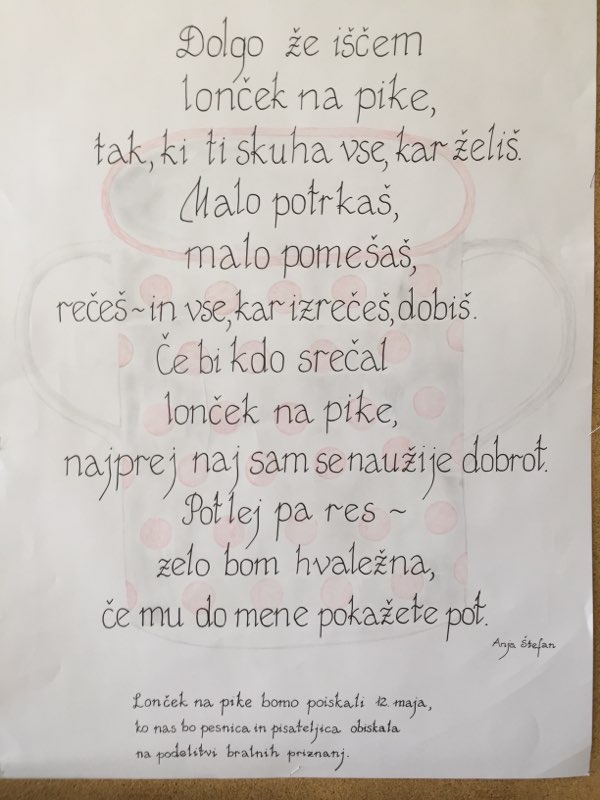 Dolgo že iščem
lonček na pike,
tak, ki ti skuha vse, kar želiš.
Malo potrkaš,
malo pomešaš,
rečeš ~ in vse, kar izrečeš, dobiš.
Če bi kdo srečal
lonček na pike,
najprej naj sam se naužije dobrot.
Potlej pa res ~
zelo bom hvaležna,
če mu do mene pokažete pot.
Anja Štefan
Lonček na pike bomo poiskali 12. maja,
ko nas bo pesnica in pisateljica obiskala
na podelitvi bralnih priznanj.